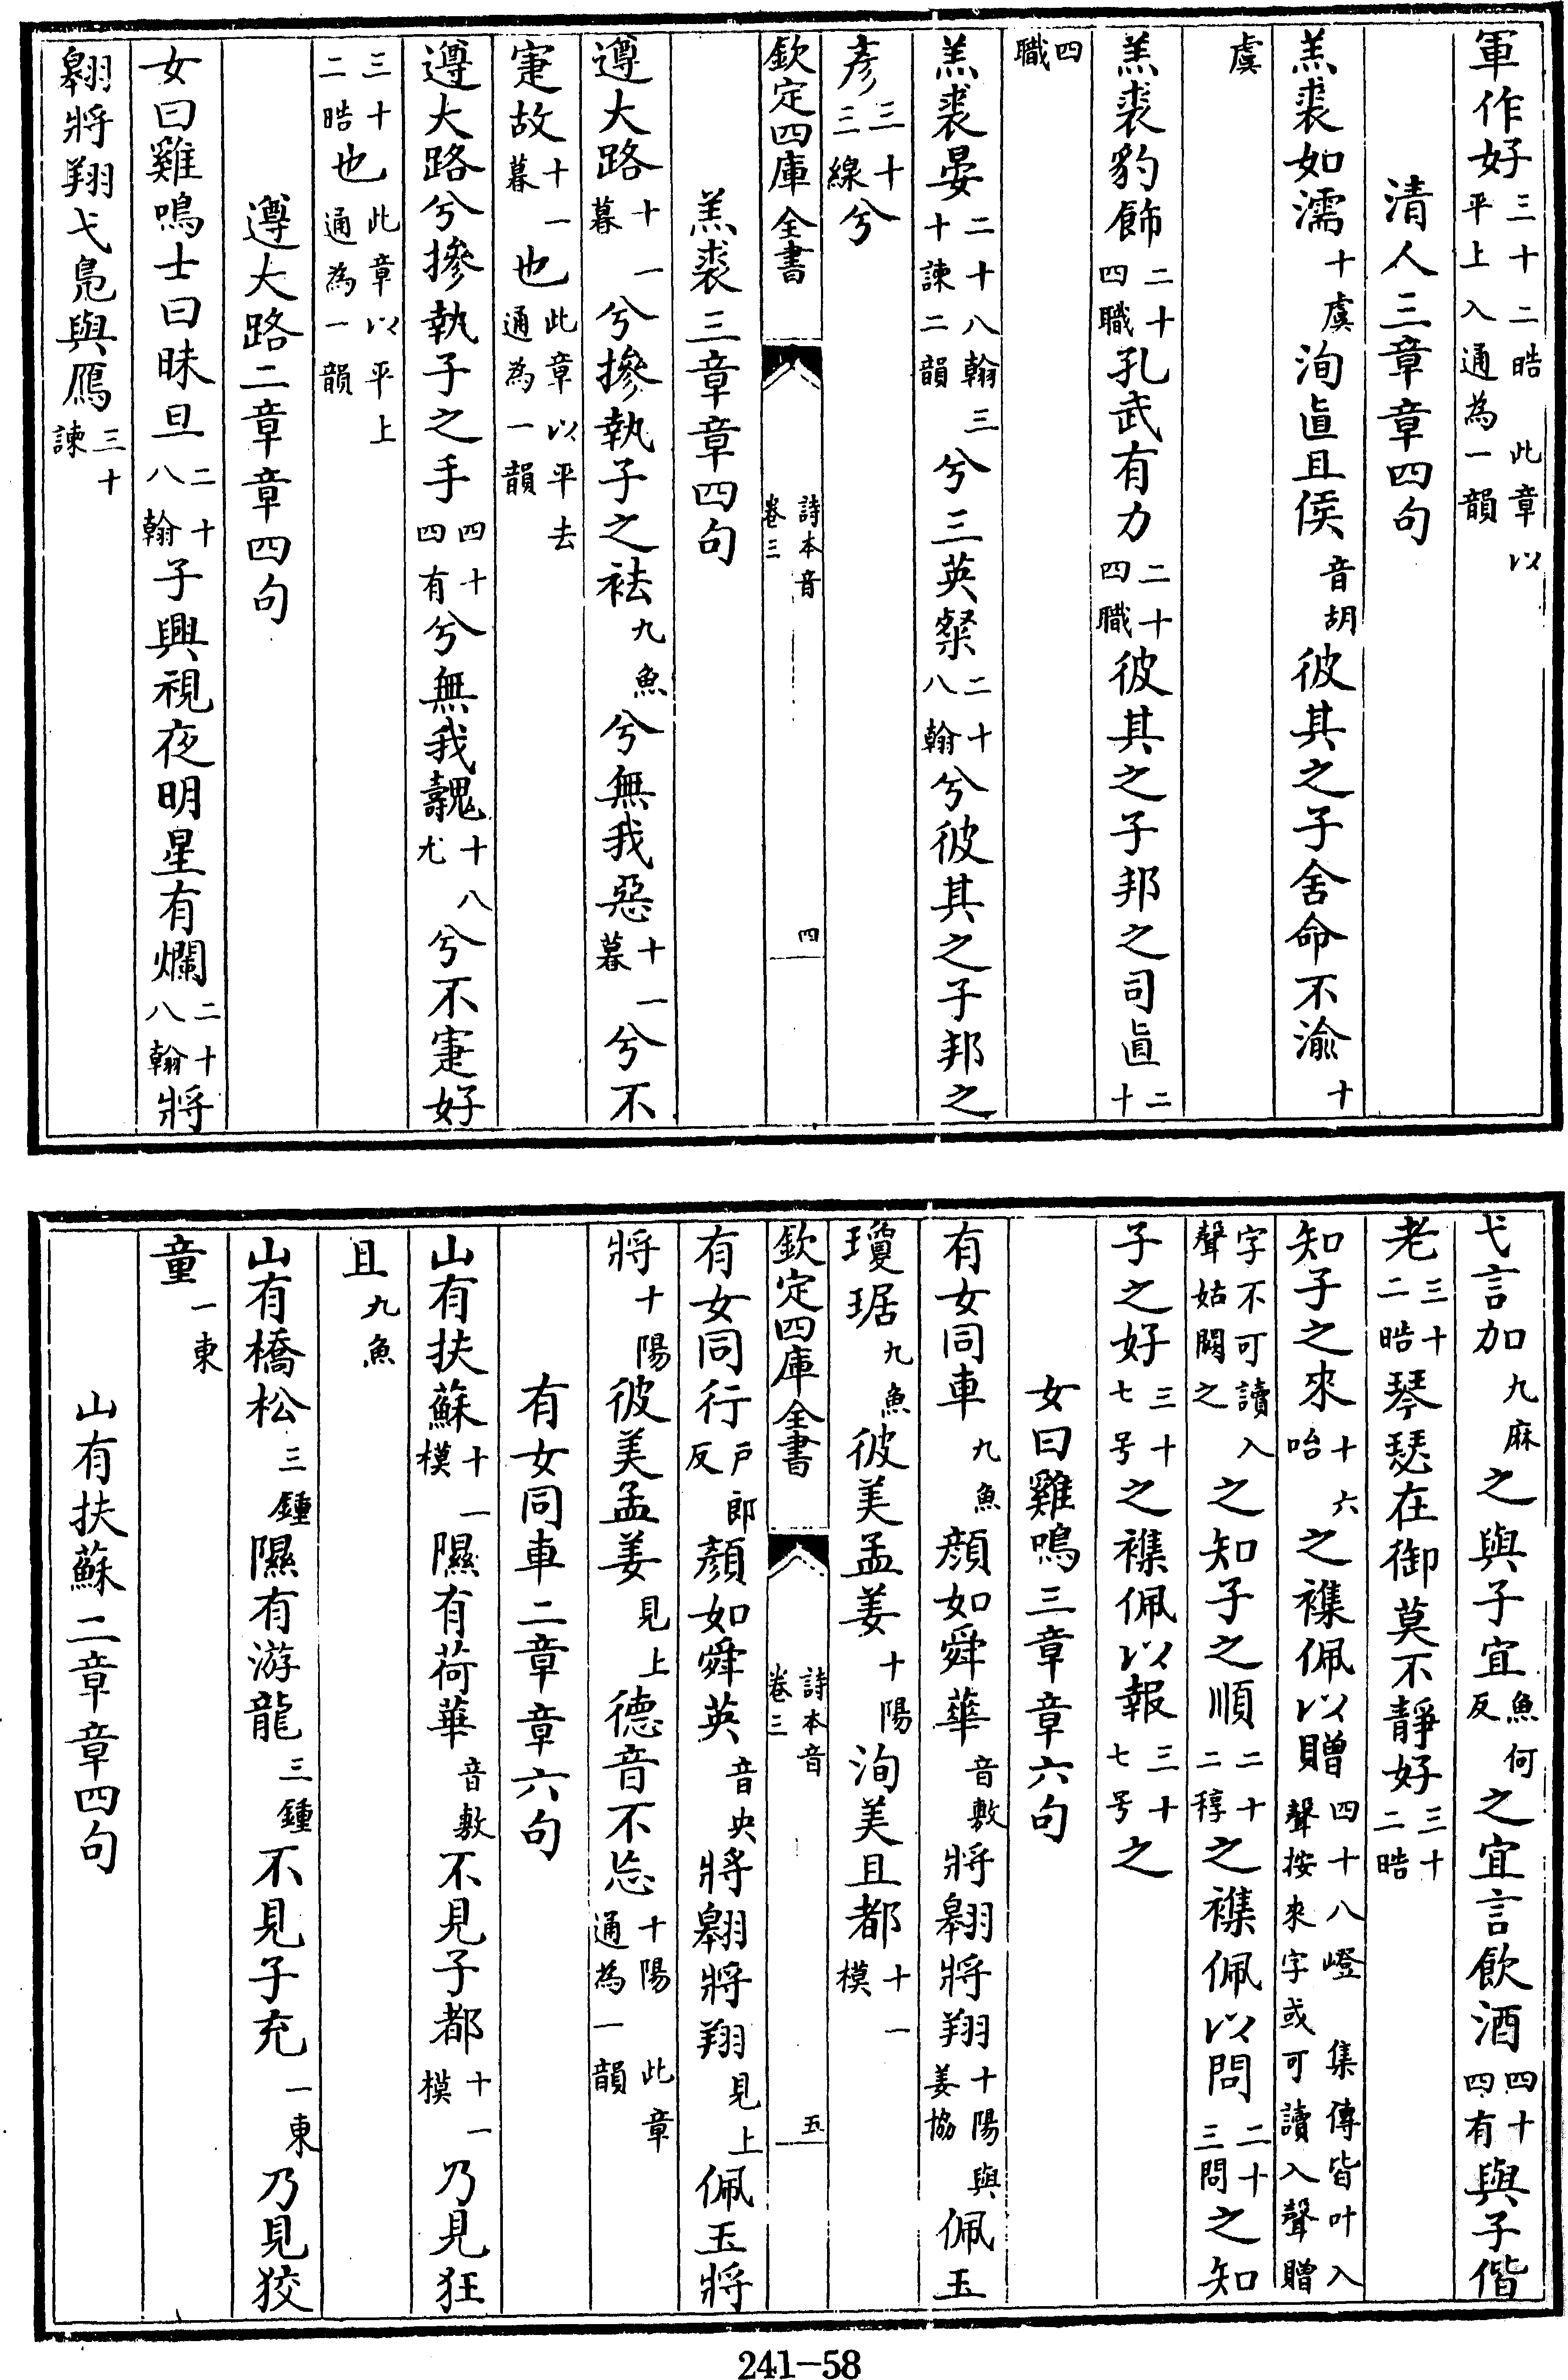 軍作好三十二晧 此章以平上入通為一韻
清人三章章四句
羔裘如濡十虞洵直且侯音胡彼其之子舍命不渝十
虞
羔裘豹飾二十四職孔武有力二十四職彼其之子邦之司直二十
四職
羔裘晏二十八翰三十諫二韻兮三英粲二十八翰兮彼其之子邦之
彥三十三線兮
欽定四庫全書 詩本音卷三 四
羔裘三章章四句
遵大路十一暮兮摻執子之袪九魚兮無我惡十一暮兮不
寁故十一暮也此章以平去通為一韻
遵大路兮摻執子之手四十四有兮無我魗十八尤兮不寁好
三十二晧也此章以平上通為一韻
遵大路二章章四句
女曰雞鳴士曰昧旦二十八翰子興視夜明星有爛二十八翰將
翱將翔弋鳧與鴈三十諫
弋言加九麻之與子宜魚何反之宜言飲酒四十四有與子偕
老三十二晧琴瑟在御莫不靜好三十二晧
知子之來十六咍之襍佩以贈四十八嶝 集傳皆叶入聲按來字或可讀入聲贈
字不可讀入聲姑闕之之知子之順二十二稕之襍佩以問二十三問之知
子之好三十七号之襍佩以報三十七号之
女曰雞鳴三章章六句
有女同車九魚顏如舜華音敷將翱將翔十陽與姜協佩玉
瓊琚九魚彼美孟姜十陽洵美且都十一模
欽定四庫全書 詩本音卷三 五
有女同行戶郎反顏如舜英音央將翱將翔見上佩玉將
將十陽彼美孟姜見上德音不忘十陽 此章通為一韻
有女同車二章章六句
山有扶蘇十一模隰有荷華音敷不見子都十一模乃見狂
且九魚
山有橋松三鍾隰有游龍三鍾不見子充一東乃見狡
童一東
山有扶蘇二章章四句
241-58